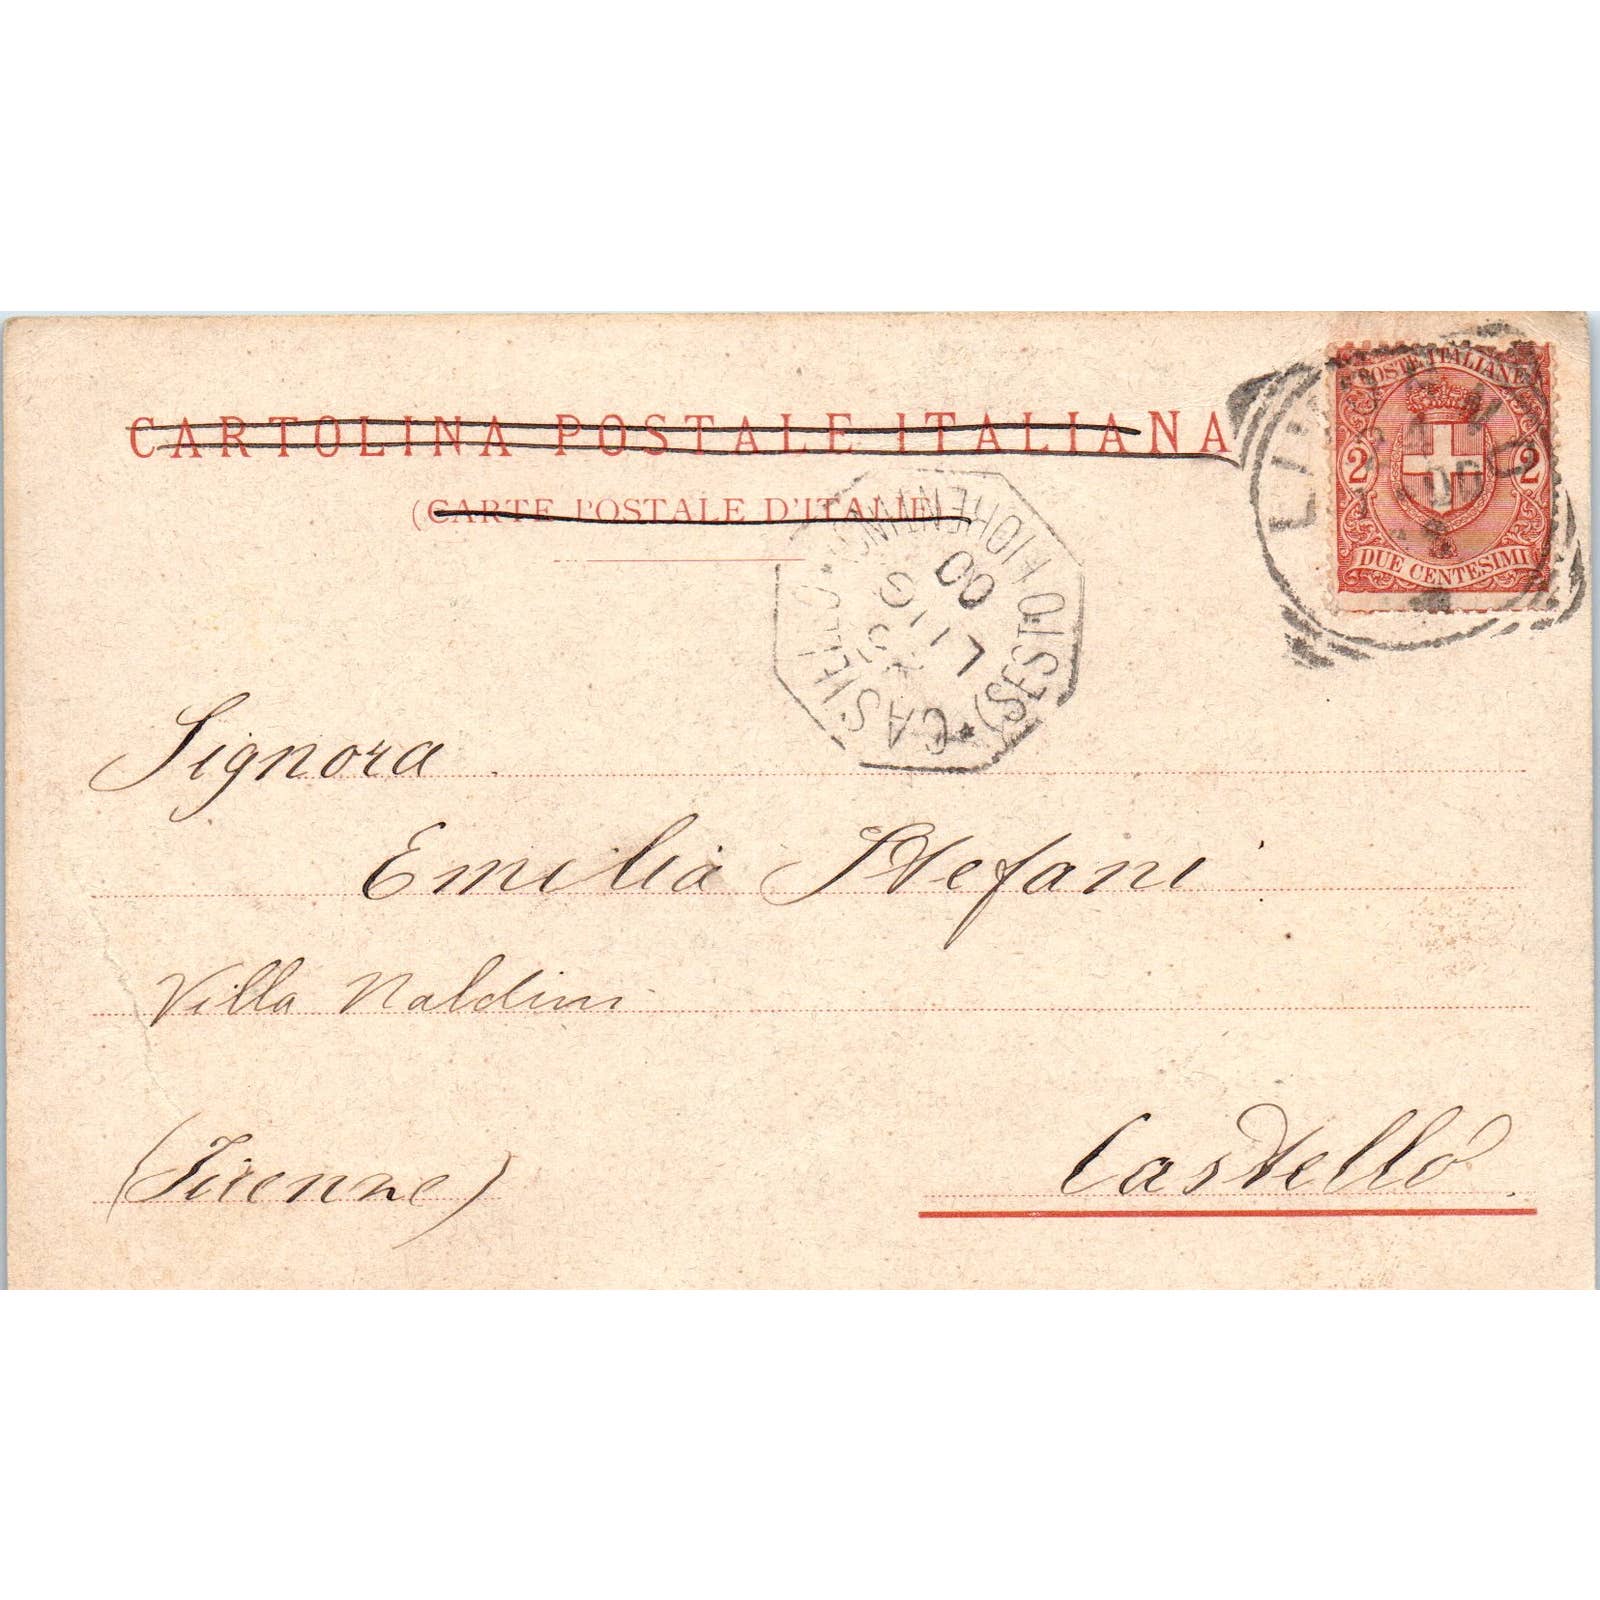 CARTOLINA POSTALE ITALIANA
(CARTE POSTALE D'ITALIE)
POSTE ITALIANE
2 2
DUE CENTESIMI
CASTELLO
(SESTO FIORENTINO)
LUG
00
Signora
Emilia Stefani
Villa Naldini
(Firenze)
Castello